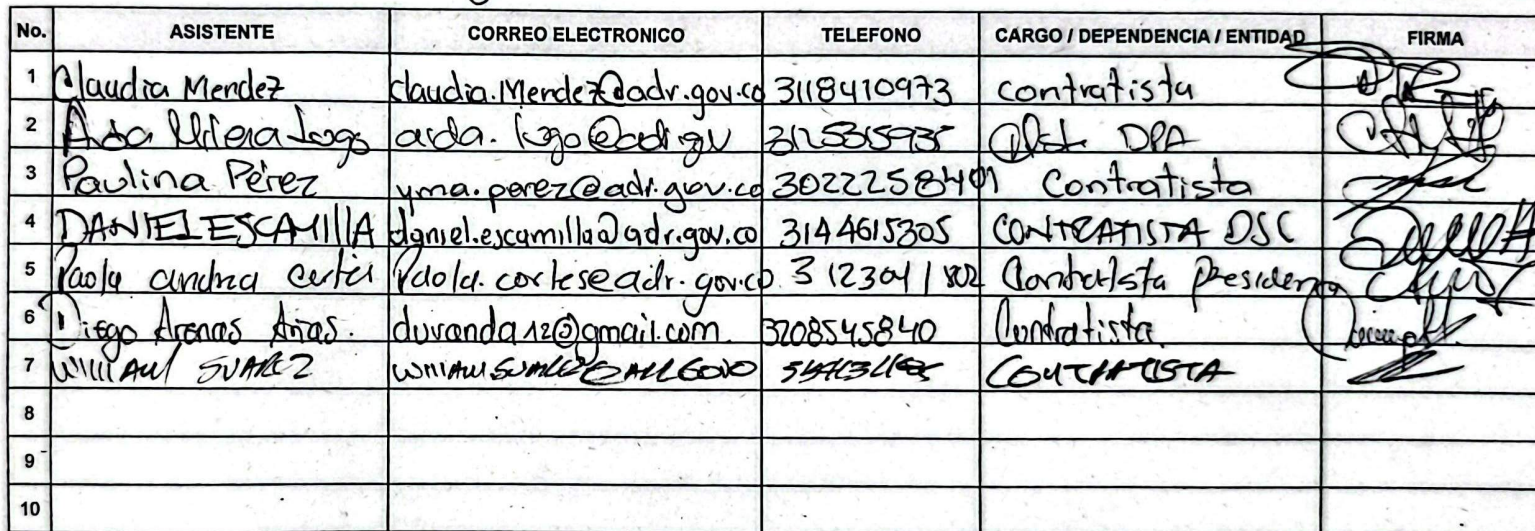 No. ASISTENTE CORREO ELECTRONICO TELEFONO CARGO / DEPENDENCIA / ENTIDAD FIRMA
1 Claudia Mendez claudia.Mendez@adr.gov.co 3118410973 contratista
2 aida. lugo@adr.gv 3125315935 DPA
3 Paulina Pérez yma.perez@adr.gov.co 3022258401 Contratista
4 DANIEL ESCAMILLA daniel.escamilla@adr.gov.co 3144615305 CONTRATISTA DSC
5 Paola andrea Paola.cortes@adr.gov.co. Contratista
6 Diego Arenas duvanda12@gmail.com. 3208545840 Contratista.
7 WILLIAM SUAREZ CONTRATISTA
8
9
10